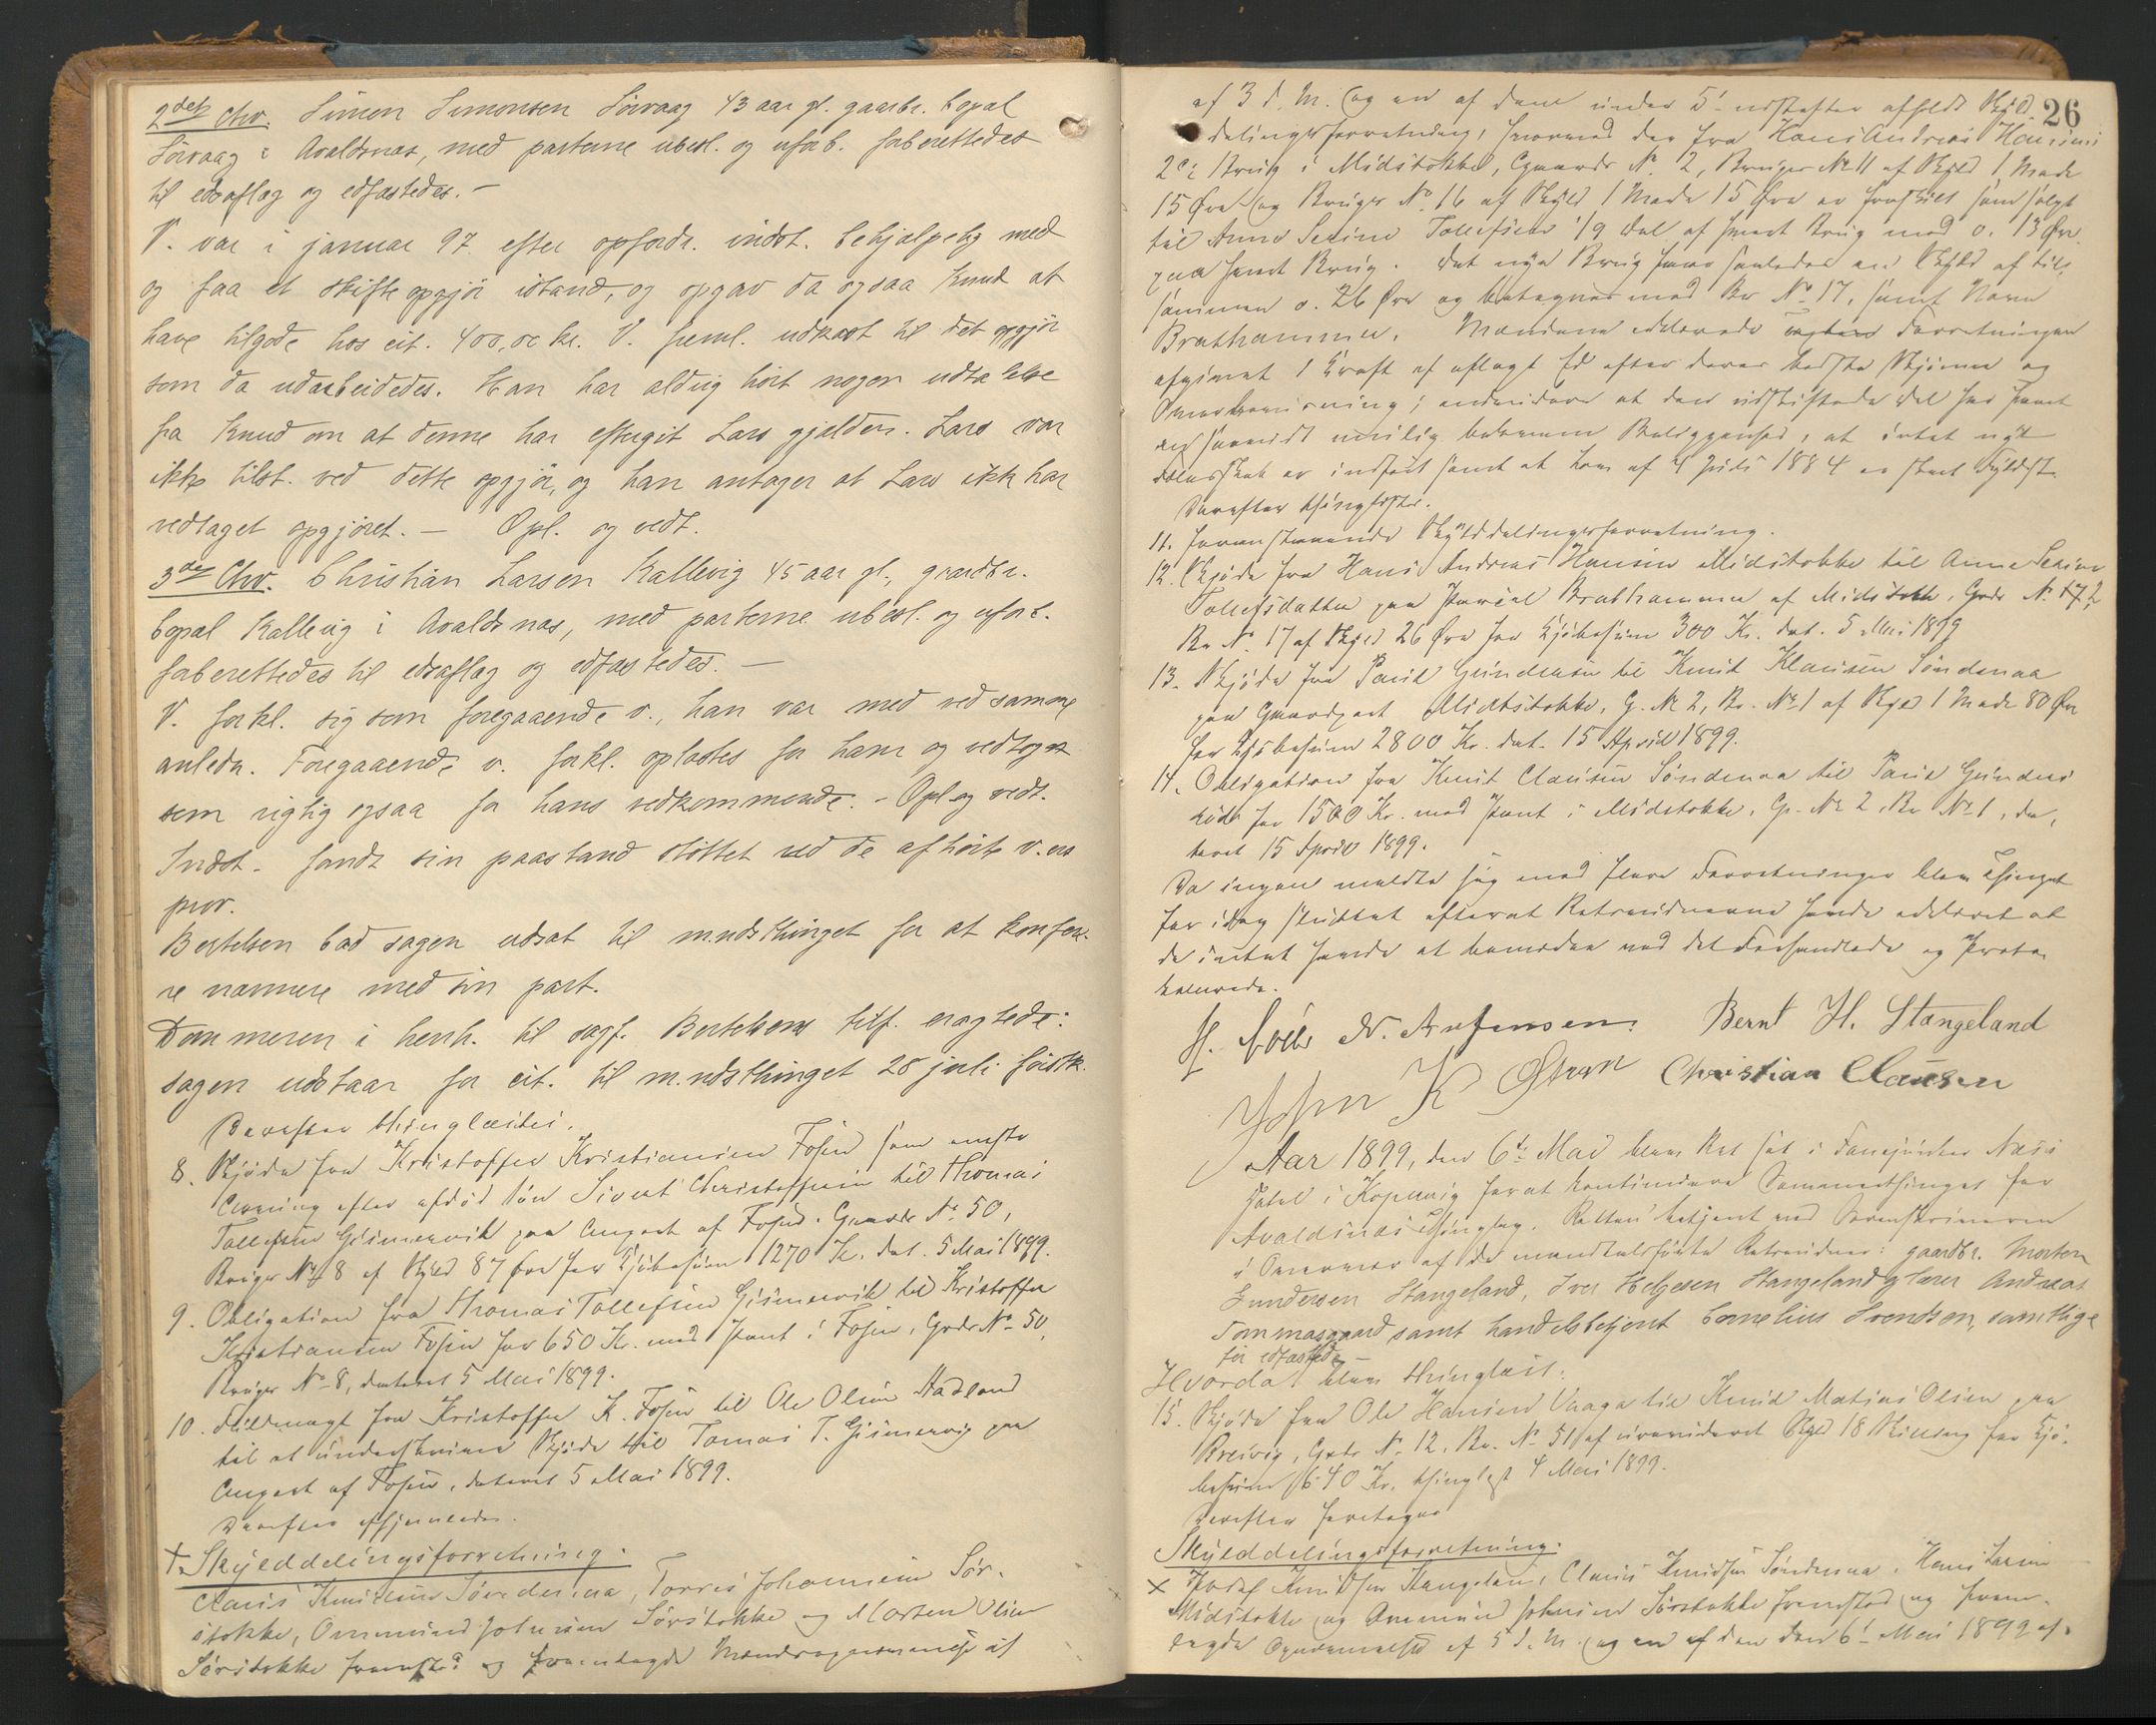 2det Chv. Simen Simonsen Sörvaag 43 aar gl. gaardbr. bopæl
Sörvaag i Avaldsnæs, med parterne ubesl. og uforb. forberettedes
til edsaflæg og edfæstedes. –
V. var i januar 97 efter opfordr. indst. behjælpelig med
og faa et skifteopgjör istand, og opgav da ogsaa Knud at
have tilgode hos cit. 400,00 kr. V. freml. udkast til det opgjör
som da udarbeidedes. Han har aldrig hört nogen udtalelse
fra Knud om at denne har eftergit Lars gjælden. Lars var
ikke tilst. ved dette opgjör, og han antager at Lars ikke har
vedtaget opgjöret. – Opl. og vedt.
3die Chv. Christian Larsen Kallevig 45 aar gl., gaardbr.
bopæl Kallevig i Avaldsnæs, med parterne ubesl. og uforb.
forberettedes til edsaflæg og edfæstedes. –
V. forkl. sig som foregaaende v., han var med ved samme
anledn. Foregaaende v. forkl. oplæstes for ham og vedtoges
som rigtig ogsaa for hans vedkommende. – Opl. og vedt.
Indst. fandt sin paastand støttet ved de afhørte v.ers
prov.
Bertelsen bad sagen udsat til m.ndsthinget for at konfere-
re nærmere med sin part.
Dommeren i henh. til sagf. Bertelsens tilf. eragtede:
sagen udstaar for cit. til m.ndsthinget 28 juli förstk.
Derefter thinglæstes.
8. Skjöde fra Kristoffer Kristiansen Fosen som eneste
Arving efter afdöd sön Sivert Christoffersen til Thomas
Tollefsen Gismervik paa Anpart af Fosen. Gaards No 50,
Brugs No 8 af Skyld 87 Öre for Kjöbesum 1270 Kr. dat. 5 Mai 1899.
9. Obligation fra Thomas Tollefsen Gismervik til Kristoffer
Kristiansen Fosen for 650 Kr. med Pant i Fosen, Grds No 50,
Brugs No 8, dateret 5 Mai 1899.
10. Fuldmagt fra Kristoffer K. Fosen til Ole Olsen Hadland
til at underskrive Skjöde til Tomas T. Gismervig paa
Anpart af Fosen, dateret 5 Mai 1899.
Derefter afhjemledes.
+. Skylddelingsforretning.
Claus Knutsen Söndenaa, Torris Johannesen Sör-
stokke, Ommund Johnsen Sörstokke og Morten Olsen
Sörstokke fremstod og fremlagde Mandsopnævnelse af
26
af 3 d. M. og en af dem under 5te næstefter afholdt Skyld-
delingsforretning, hvorved der fra Hans Andreas Hansens
2de Brug i Midstokke, Gaards No 2, Brugs No 11 af Skyld 1 Mark
15 Öre og Brugs No 16 af Skyld 1 Mark 15 Öre er fraskilt som solgt
til Anne Serine Tollefsen 1/9 Del af hvert Brug med 0. 13 Öre
paa hvert Brug. Det nye Brug faar saaledes en Skyld af til-
sammen 0. 26 Öre og betegnes med Br No 17, samt Navn
Brathammer. Mændene erklærede Forretningen
afgivet i Kraft af aflagt Ed efter deres bedste Skjøn og
Overbevisning; endvidere at den udskiftede Del har faaet
en saavidt mulig bekvem Beliggenhed, at intet nyt
er indfört samt at Lov af 4 Juli 1884 er skeet Fyldest.
Derefter thinglæstes.
11. Foranstaaende Skylddelingsforretning.
12. Skjöde fra Hans Andreas Hansen Midstokke til Anne Serine
Tollefsdatter paa Parcel Brathammer af Midstokke, Grds No 2
Br No 17 af Skyld 26 Öre for Kjöbesum 300 Kr. dat. 5 Mai 1899
13. Skjöde fra Paul Gundersen til Knut Klausen Söndenaa
paa Gaardpart Midtstokke, G. No 2, Br. No 1 af Skyld 1 Mark 80 Öre
for Kjöbesum 2800 Kr. dat. 15 April 1899.
14. Obligation fra Knut Clausen Söndenaa til Paul Gunders
for 1500 Kr. med Pant i Midstokke, G. No 2, Br No 1, da-
teret 15 April 1899.
Da ingen meldte sig med flere Forretninger blev Thinget
for idag sluttet efterat Retsvidnerne havde erklæret at
de intet havde at bemærke ved det Forhandlede og Proto-
kollerede.
N. Arnfensen. Bernt H. Stangeland
John K Christian Clausen
Aar 1899, den 6te Mai blev Ret sat i Fanejunker Næss
Hotel i Kopervig for at kontinuere Sommerthinget for
Avaldsnæs Thinglag. Retten betjent ved Sorenskriveren
i Overvær af de mandtalsförte Retsvidner: gaardbr. Morten
Gundersen Stangeland, Iver Helgesen Stangeland, lærer Andreas
Tommasgaard samt handelsbetjent Cornelius Svendsen, samtlige
för edfæstede –
Hvorda blev thinglæst:
15. Skjöde fra Ole Hansen Vaaga til Knud Matias Olsen paa
Breivig, Grds No 12, Br. No 51 af urevideret Skyld 18 Skilling for Kjö-
besum 640 Kr. thinglyst 4 Mai 1899.
Derefter foretoges
Skylddelingsforretning.
x Knudsen Stangeland, Claus Knudsen Söndenaa, Hans Larsen
Midstokke og Ommund Johnsen Sörstokke fremstod og frem-
lagde Opnævnelse af 5 d. M. og en af dem den 6te Mai 1899 af-